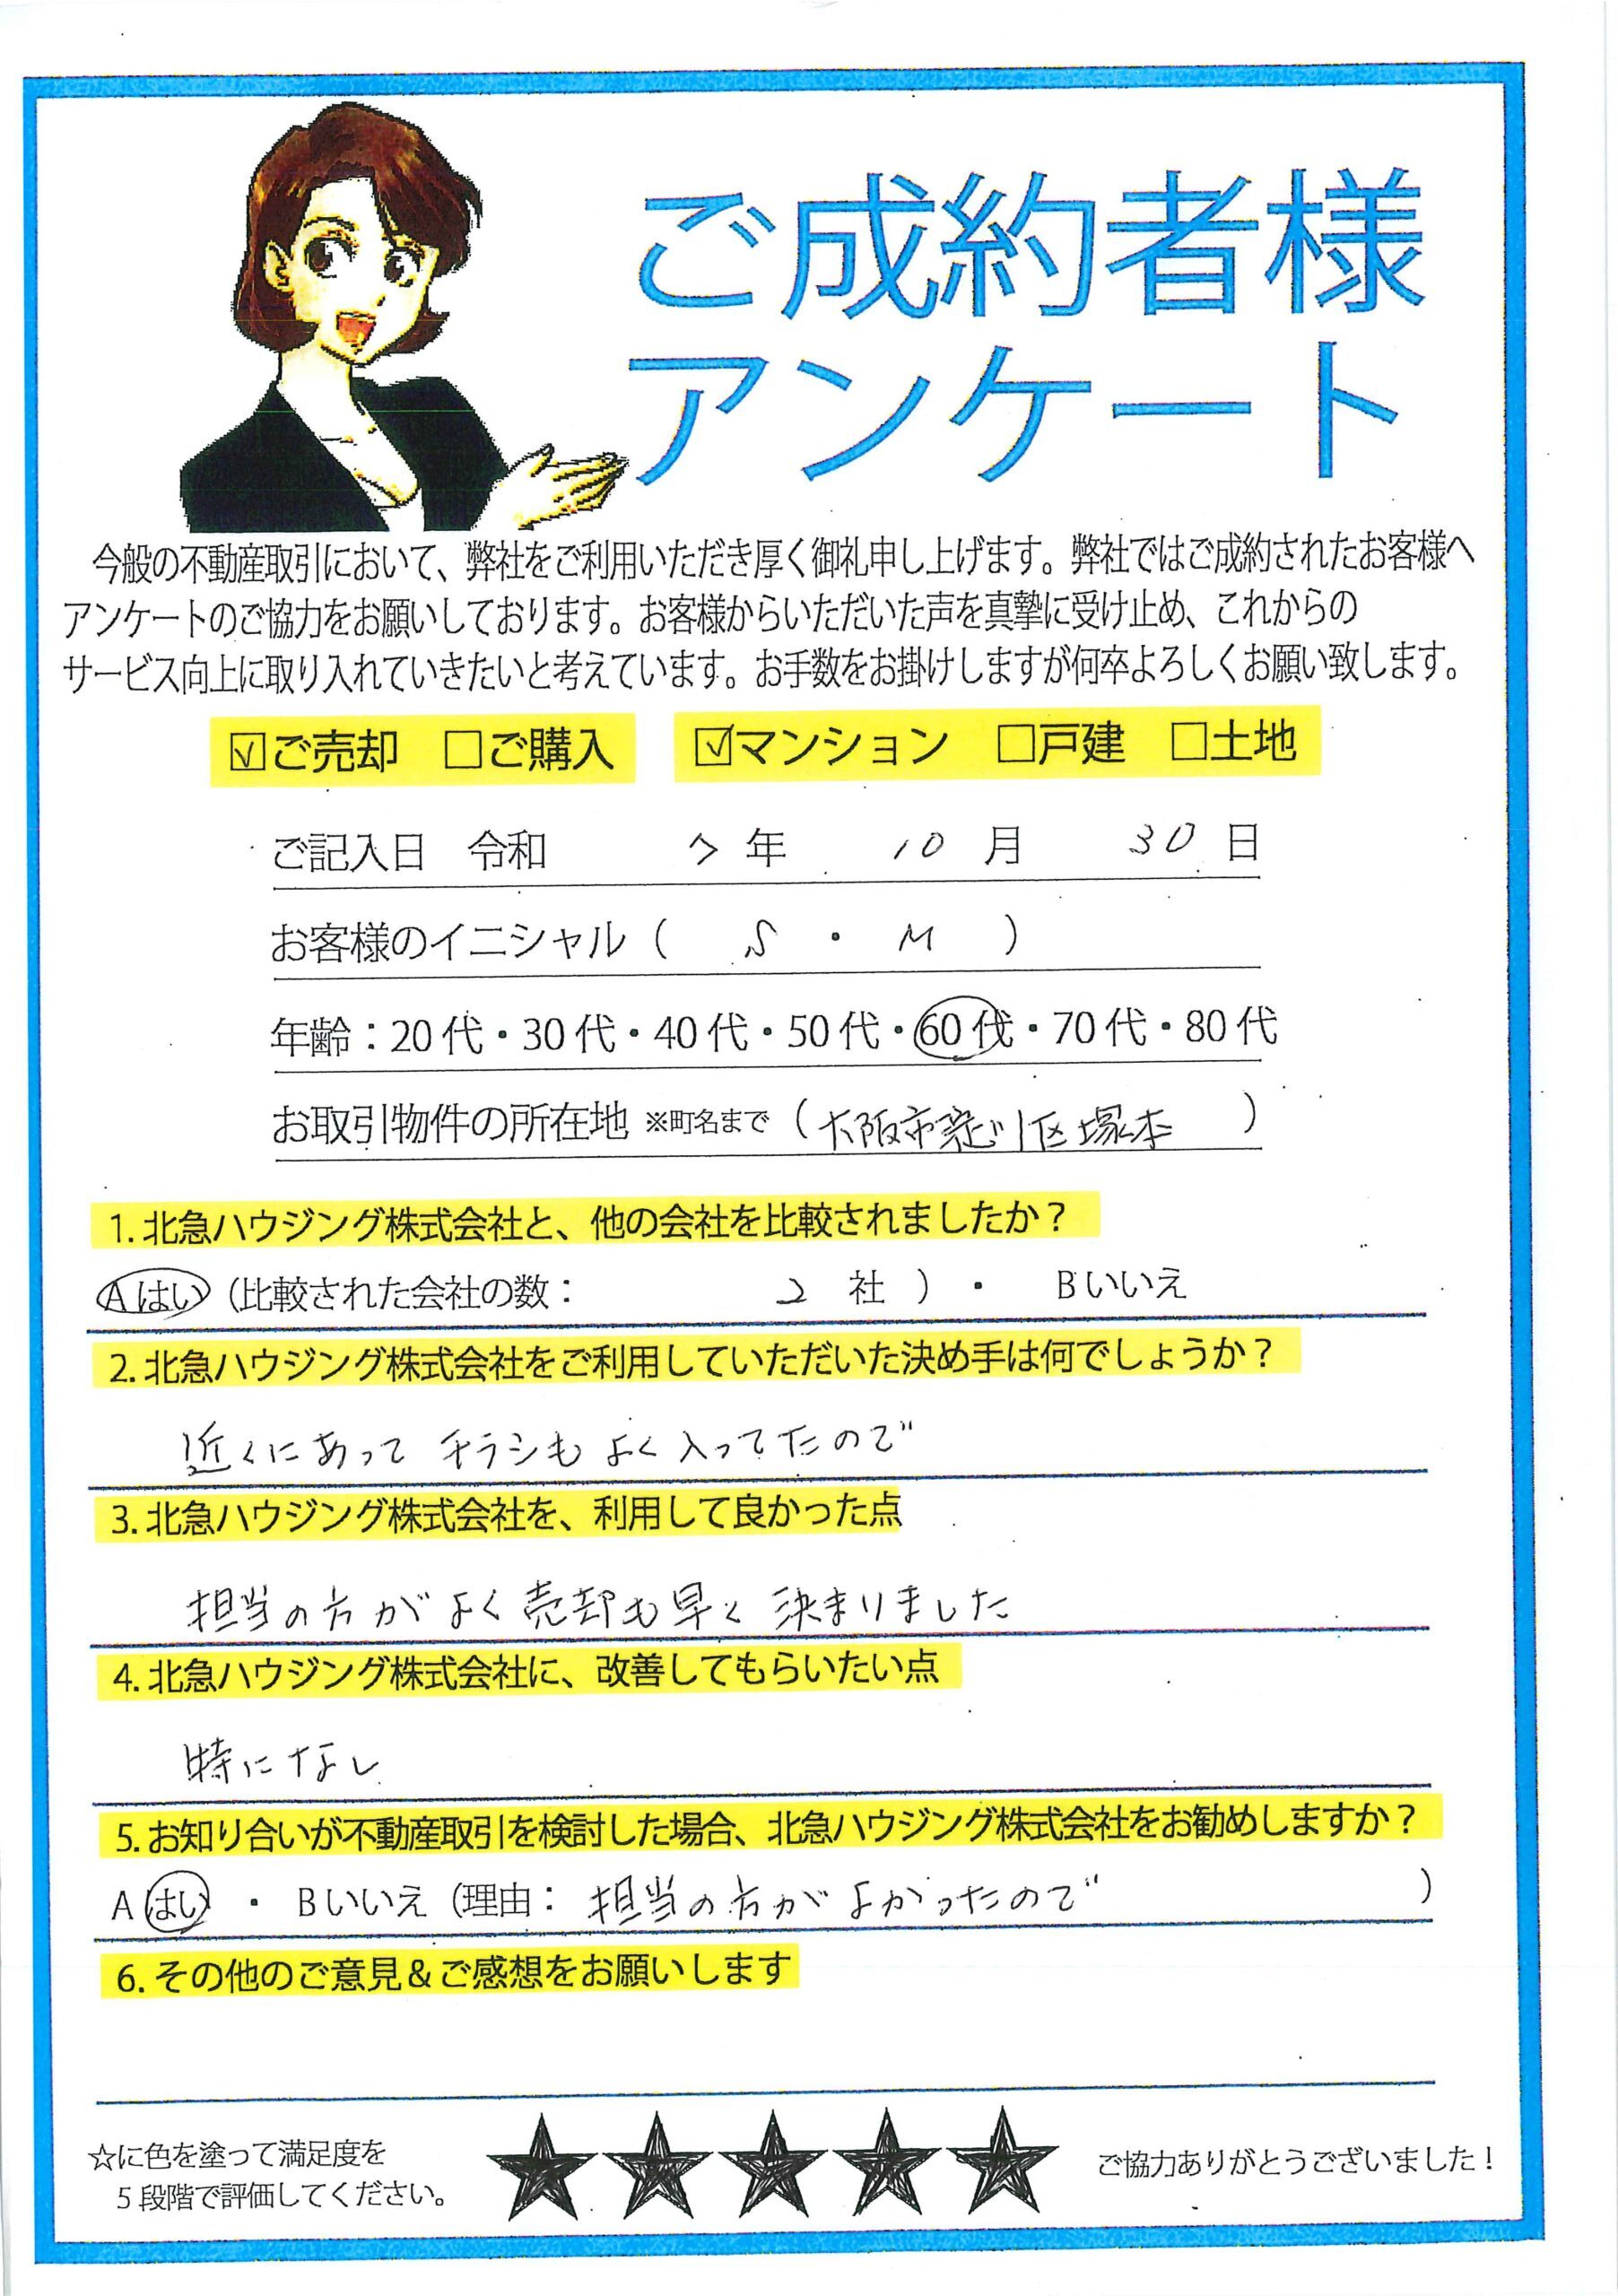 ご成約者様
アンケート
今般の不動産取引において、弊社をご利用いただき厚く御礼申し上げます。弊社ではご成約されたお客様へ
アンケートのご協力をお願いしております。お客様からいただいた声を真摯に受け止め、これからの
サービス向上に取り入れていきたいと考えています。お手数をお掛けしますが何卒よろしくお願い致します。
☑ご売却 □ご購入 ☑マンション □戸建 □土地
ご記入日 令和 7年 10月 30日
お客様のイニシャル（ S ・ M ）
年齢：20代・30代・40代・50代・60代・70代・80代
お取引物件の所在地 ※町名まで（大阪市淀川区塚本）
1. 北急ハウジング株式会社と、他の会社を比較されましたか？
Aはい（比較された会社の数： 2 社 ）・ Bいいえ
2. 北急ハウジング株式会社をご利用していただいた決め手は何でしょうか？
近くにあって チラシも よく入ってたので
3. 北急ハウジング株式会社を、利用して良かった点
担当の方が よく 売却も早く 決まりました
4. 北急ハウジング株式会社に、改善してもらいたい点
特になし
5. お知り合いが不動産取引を検討した場合、北急ハウジング株式会社をお勧めしますか？
A はい ・ Bいいえ（理由： 担当の方が よかったので ）
6. その他のご意見＆ご感想をお願いします
☆に色を塗って満足度を
5段階で評価してください。
★★★★★
ご協力ありがとうございました！